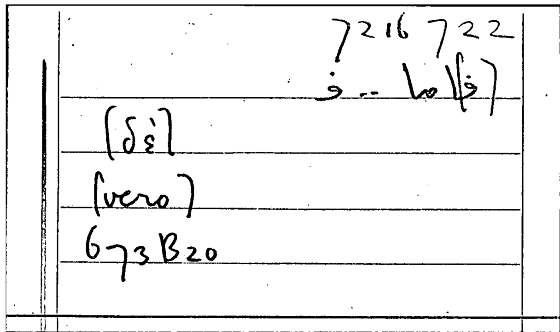 7216 722
[فا] ما .. ف
[δέ]
[vero]
673B20